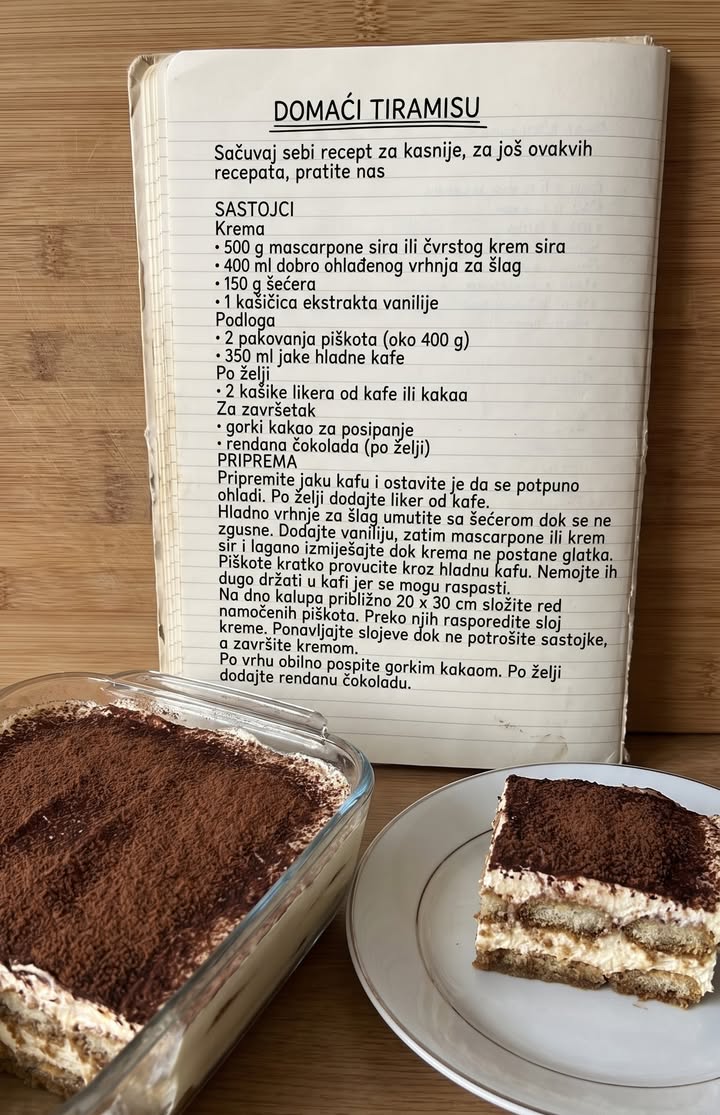 DOMAĆI TIRAMISU
Sačuvaj sebi recept za kasnije, za još ovakvih
recepata, pratite nas
SASTOJCI
Krema
• 500 g mascarpone sira ili čvrstog krem sira
• 400 ml dobro ohlađenog vrhnja za šlag
• 150 g šećera
• 1 kašičica ekstrakta vanilije
Podloga
• 2 pakovanja piškota (oko 400 g)
• 350 ml jake hladne kafe
Po želji
• 2 kašike likera od kafe ili kakaa
Za završetak
• gorki kakao za posipanje
• rendana čokolada (po želji)
PRIPREMA
Pripremite jaku kafu i ostavite je da se potpuno
ohladi. Po želji dodajte liker od kafe.
Hladno vrhnje za šlag umutite sa šećerom dok se ne
zgusne. Dodajte vaniliju, zatim mascarpone ili krem
sir i lagano izmiješajte dok krema ne postane glatka.
Piškote kratko provucite kroz hladnu kafu. Nemojte ih
dugo držati u kafi jer se mogu raspasti.
Na dno kalupa približno 20 x 30 cm složite red
namočenih piškota. Preko njih rasporedite sloj
kreme. Ponavljajte slojeve dok ne potrošite sastojke,
a završite kremom.
Po vrhu obilno pospite gorkim kakaom. Po želji
dodajte rendanu čokoladu.